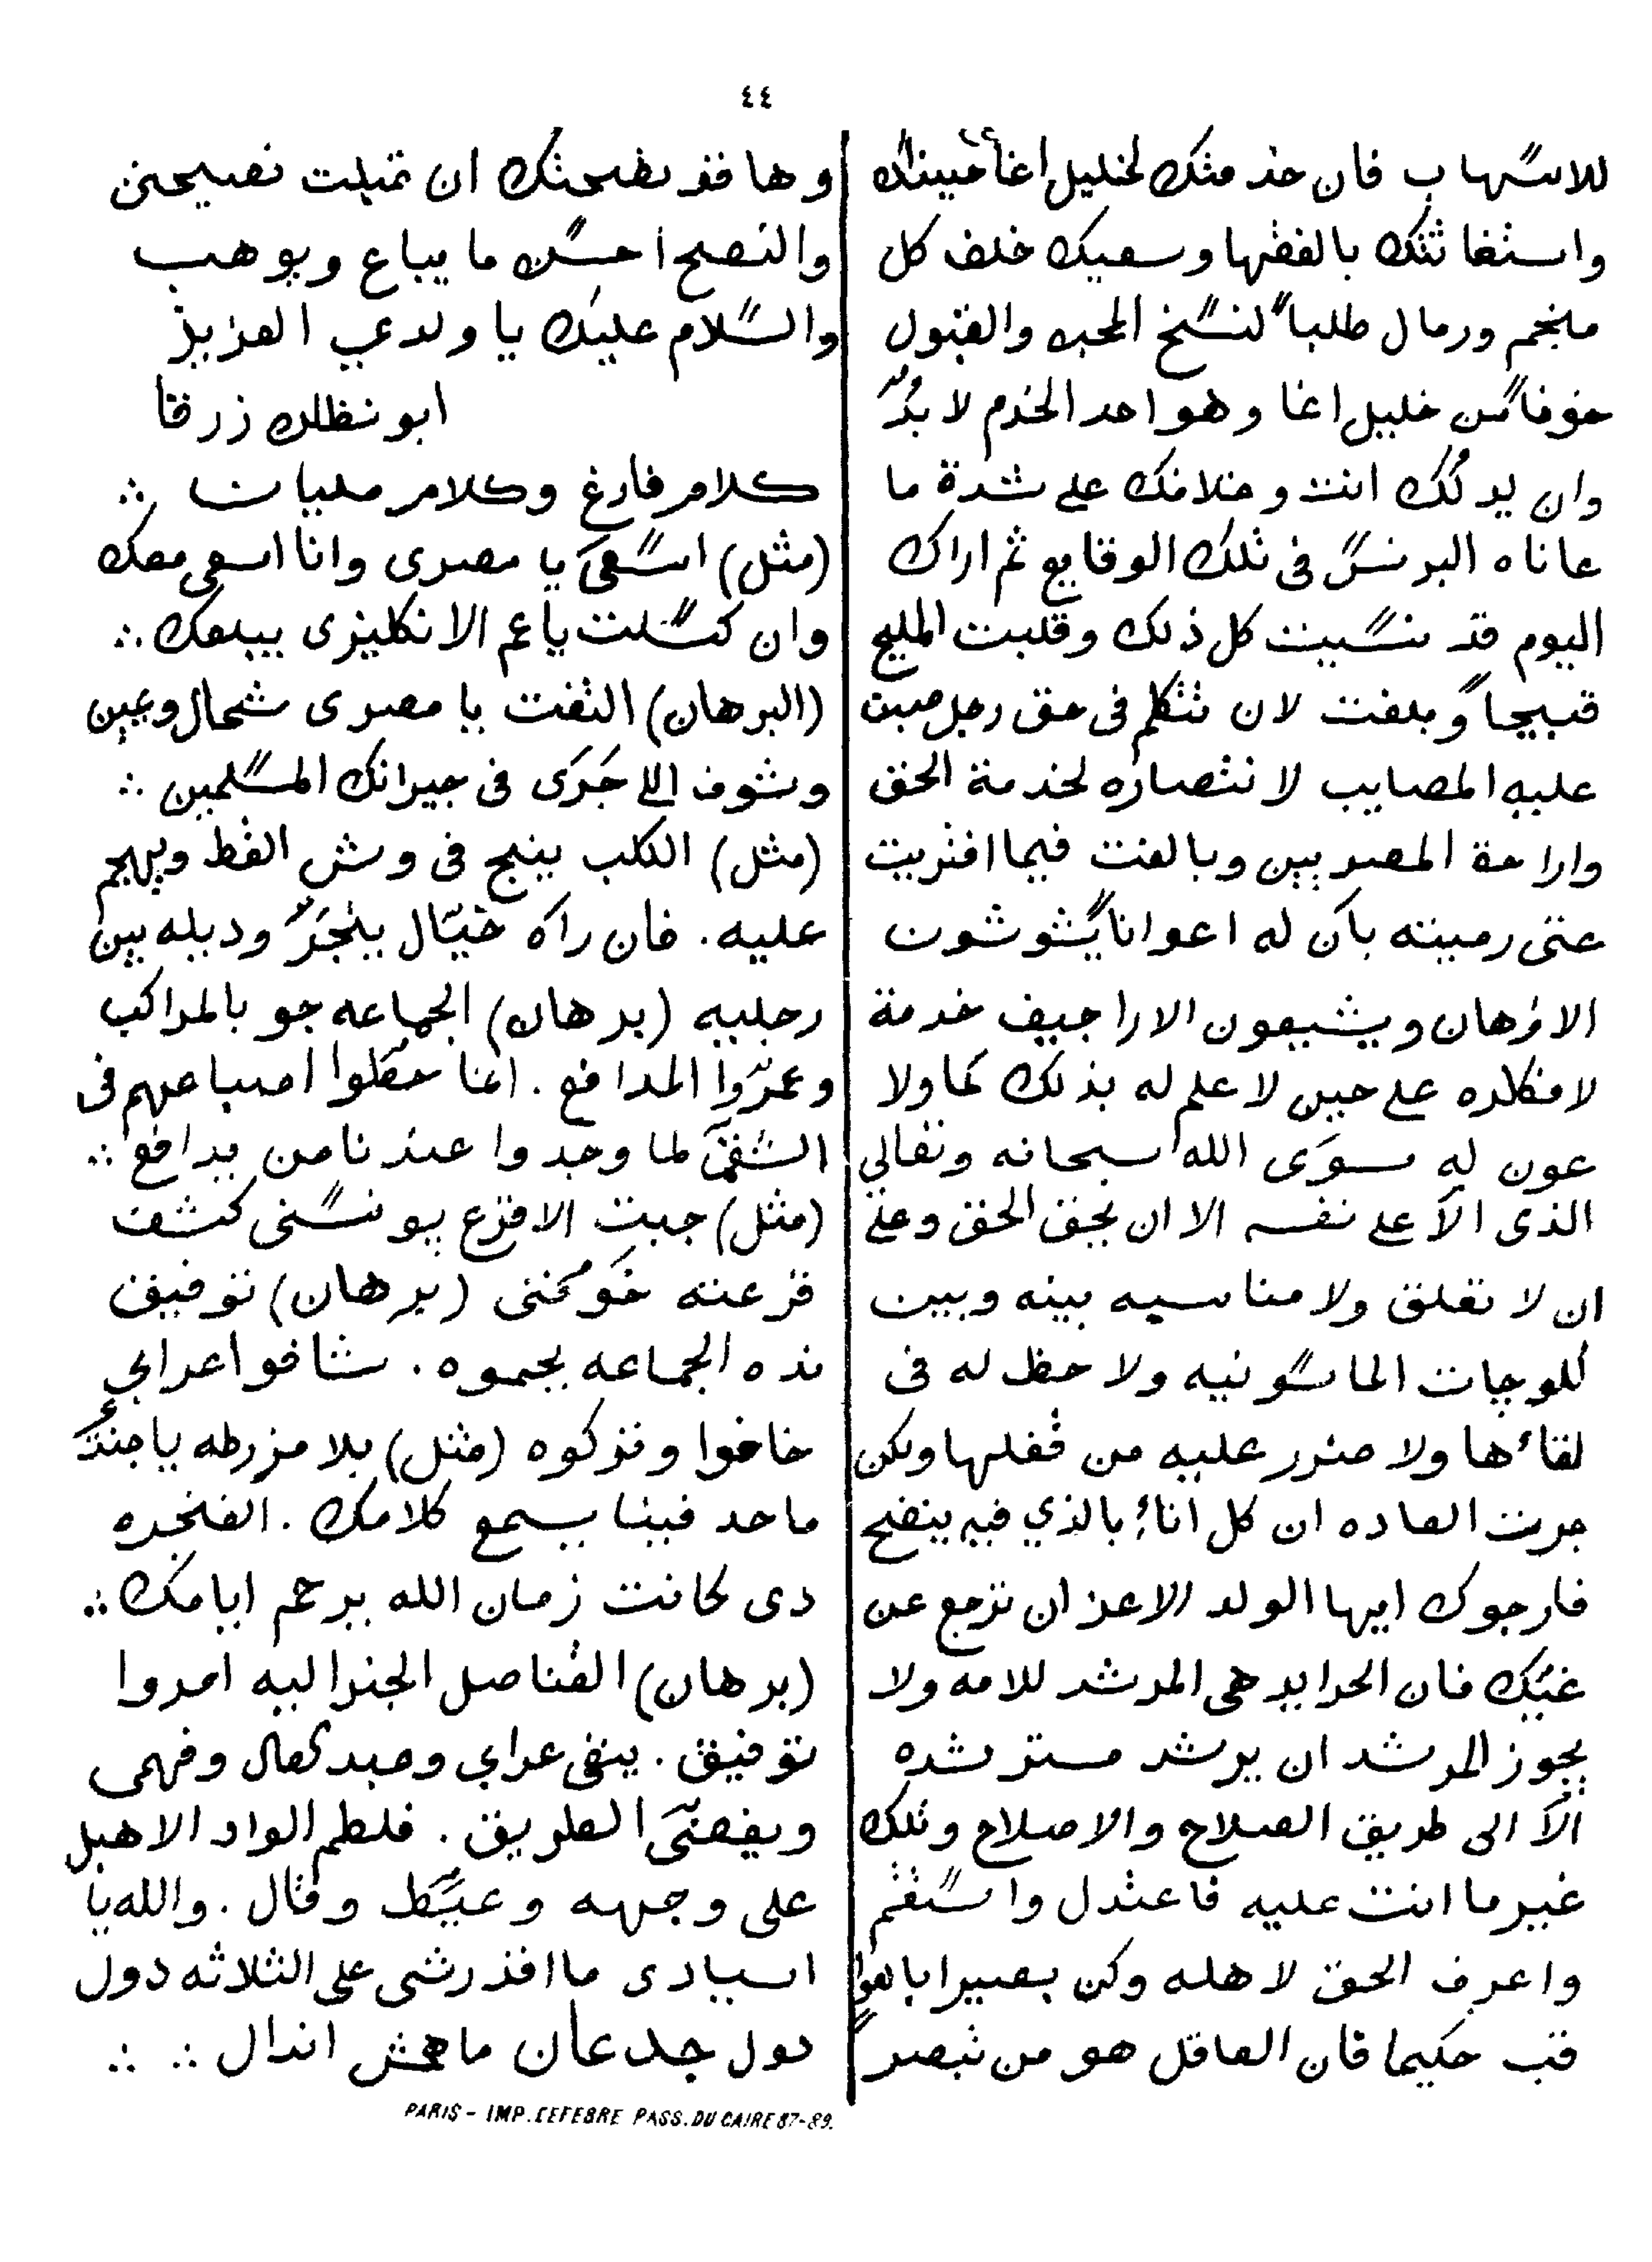 ٤٤
للاسهاب فان خدمتك لخليل اغا حينئذ
واستغاثتك بالفقها وسعيك خلف كل
منجم ورمال طلباً لنسخ المحبه والقبول
خوفا من خليل اغا وهو احد الخدم لا بدّ
وان يدلك انت وخلافك على شدة ما
عاناه البرنس فى تلك الوقايع ثم اراك
اليوم قد نسيت كل ذلك وقلبت المليح
قبيحاً وبلغت لان تتكلم فى حق رجل صبت
عليه المصايب لانتصاره لخدمة الحق
واراحة المصريين وبالغت فيما افتريت
حتى رميته بأن له اعوانا يشوشون
الاذهان ويشيعون الاراجيف خدمة
لافكاره على حين لا علم له بذلك كما ولا
عون له سوى الله سبحانه وتعالى
الذى الا على نفسه الا ان يحق الحق وعلى
ان لا تعلق ولا مناسبه بينه وبين
اللوجات الماسونيه ولا حظ له فى
لقاءها ولا ضرر عليه من قفلها ولكن
جرت العاده ان كل اناءٍ بالذي فيه ينضح
فارجوك ايها الولد الاعز ان ترجع عن
غيّك فان الجرايد هى المرشد للامه ولا
يجوز للمرشد ان يرشد مسترشده
الاّ الى طريق الصلاح والاصلاح وتلك
غير ما انت عليه فاعتدل واستقم
واعرف الحق لاهله وكن بصيرا بالعوا
قب حكيما فان العاقل هو من تبصر
وها قد نصحتك ان قبلت نصيحتى
والنصح احسن ما يباع ويوهب
والسلام عليك يا ولدي العزيز
ابو نظاره زرقا
كلام فارغ وكلام مليان ∴
(مثل) اسعى يا مصرى وانا اسعى معك
وان كسلت يا عم الانكليزى يبلعك ∴
(البرهان) التفت يا مصرى شمال ويمين
وشوف اللى جَرَى فى جيرانك المسلمين ∴
(مثل) الكلب ينبح فى وش القط ويهجم
عليه. فان راه خيّال ينجَرّ وديله بين
رجليه (برهان) الجماعه جو بالمراكب
وعمرّوا المدافع. انما حطوا اصباعهم فى
الشق لما وجدوا عندنا من يدافع ∴
(مثل) جبت الاقرع يونسنى كشف
قرعته خوفنى (برهان) توفيق
نده الجماعه يحموه. شافوا عرابي
خافوا وتركوه (مثل) بلا مزرطه يا جنتّ
ماحد فينا يسمع كلامك. الفنخره
دى كانت زمان الله يرحم ايامك ∴
(برهان) القناصل الجنراليه امروا
توفيق. ينفى عرابي وعبد العال وفهمى
ويفضّى الطريق. فلطم الواد الاهبل
على وجهه وعيّط وقال. والله يا
اسيادى ما اقدرشى على الثلاثه دول
دول جدعان ماهمش اندال ∴ ∴
PARIS - IMP. LEFEBRE PASS. DU CAIRE 87-89.